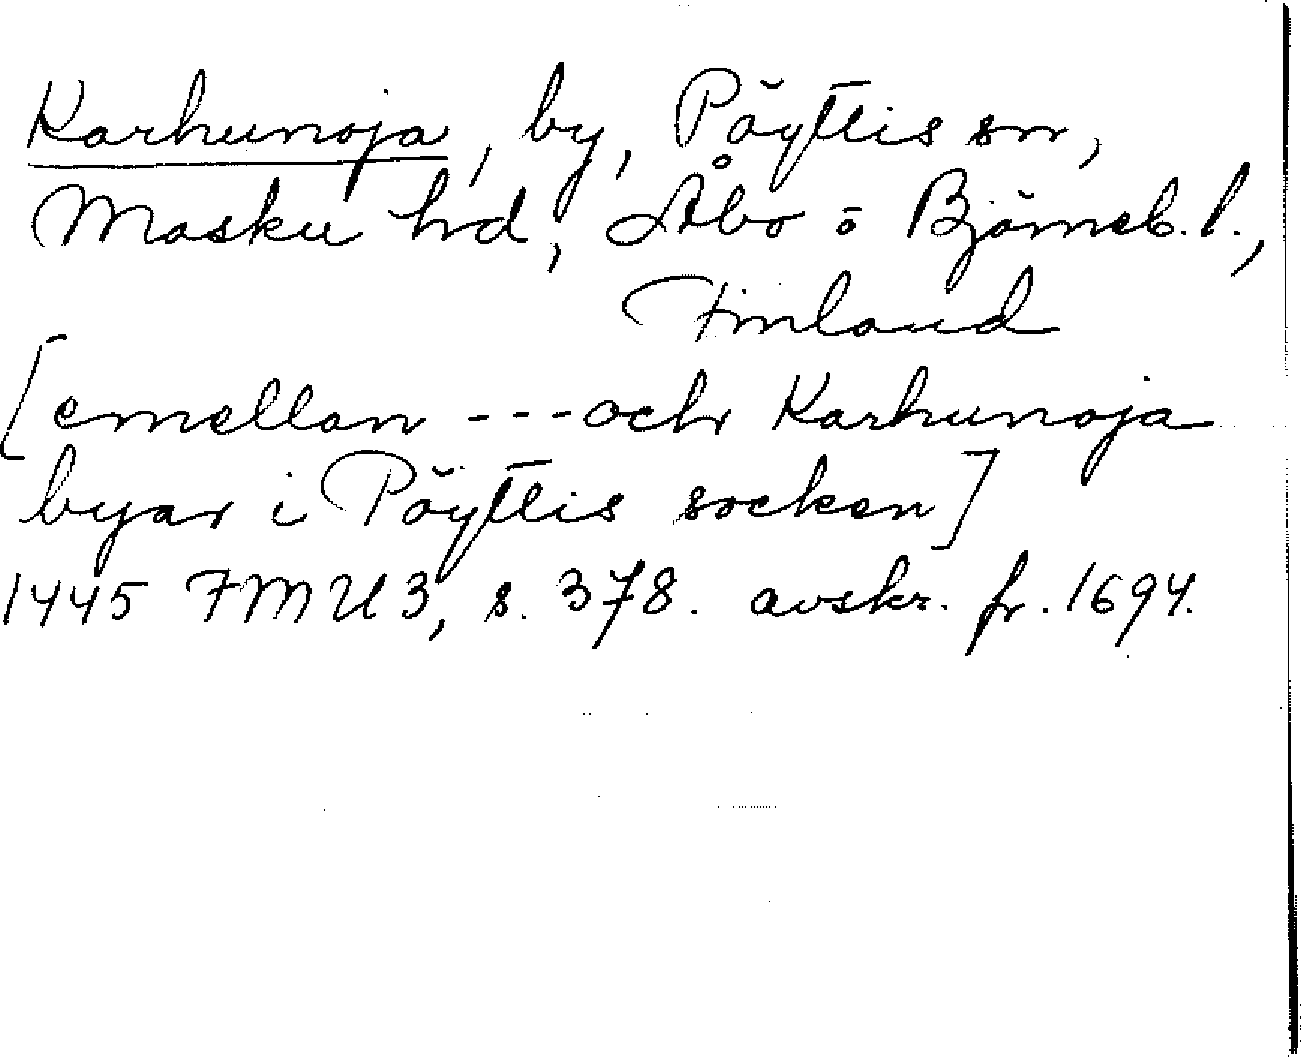 Karhunoja, by, Pöyttis sn,
Masku hd, Åbo o Björneb. l.,
Finland
[emellan --- och Karhunoja
byar i Pöyttis socken]
1445 FMU 3, s. 378. avskr. fr. 1694.